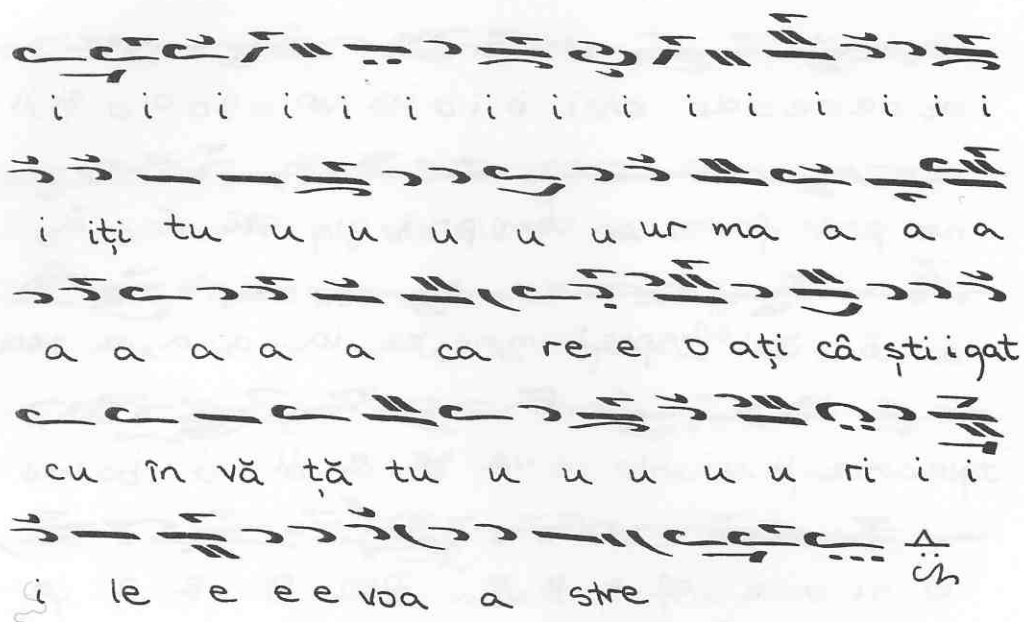 i i i i i i i i i i i i i i
i iți tu u u u u u ur ma a a a
a a a a a ca re e o ați câ ști gat
cu în vă ță tu u u u u u ri i i
i le e e e voa a stre